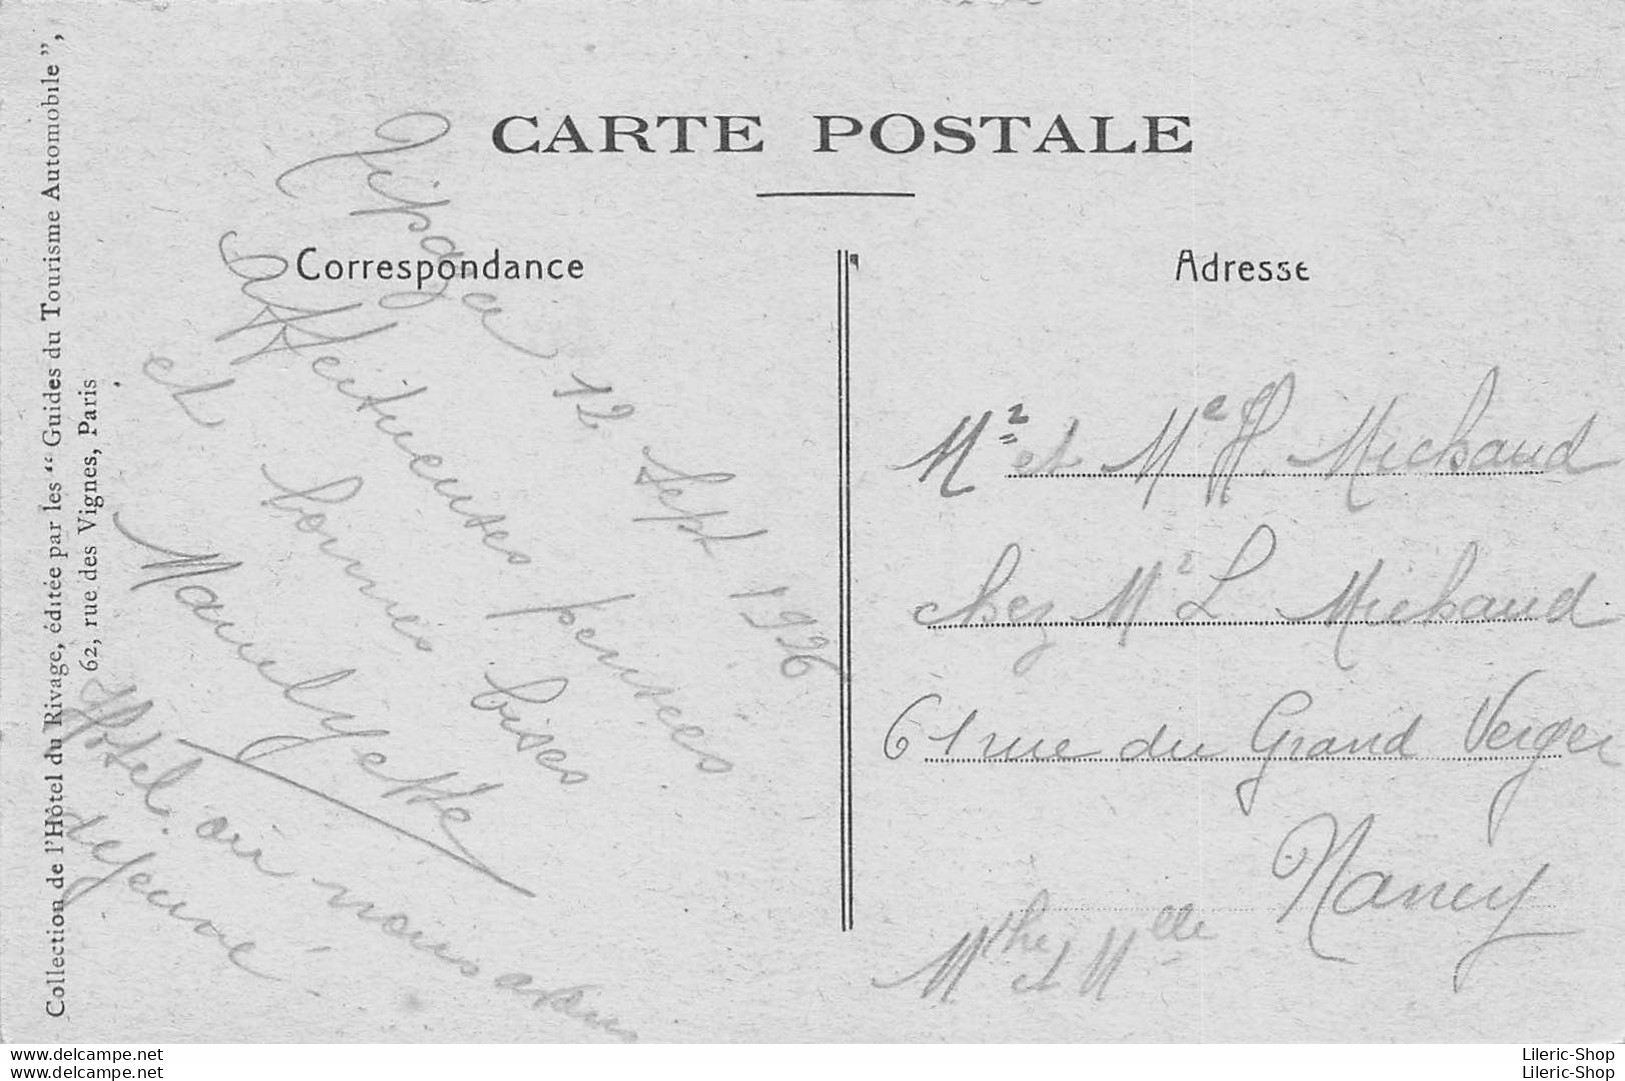 CARTE POSTALE
Correspondance
Adresse
Collection de l'Hôtel du Rivage, éditée par les “ Guides du Tourisme Automobile ”,
62, rue des Vignes, Paris
12 Sept 1926
Affectueuses pensées
et bonnes bises
Hôtel où nous avons
dejeuné
Mr et Me H. Michaud
chez Mr L Michaud
61 rue du Grand Verger
Nancy
et Melle
www.delcampe.net
www.delcampe.net
Lileric-Shop
Lileric-Shop